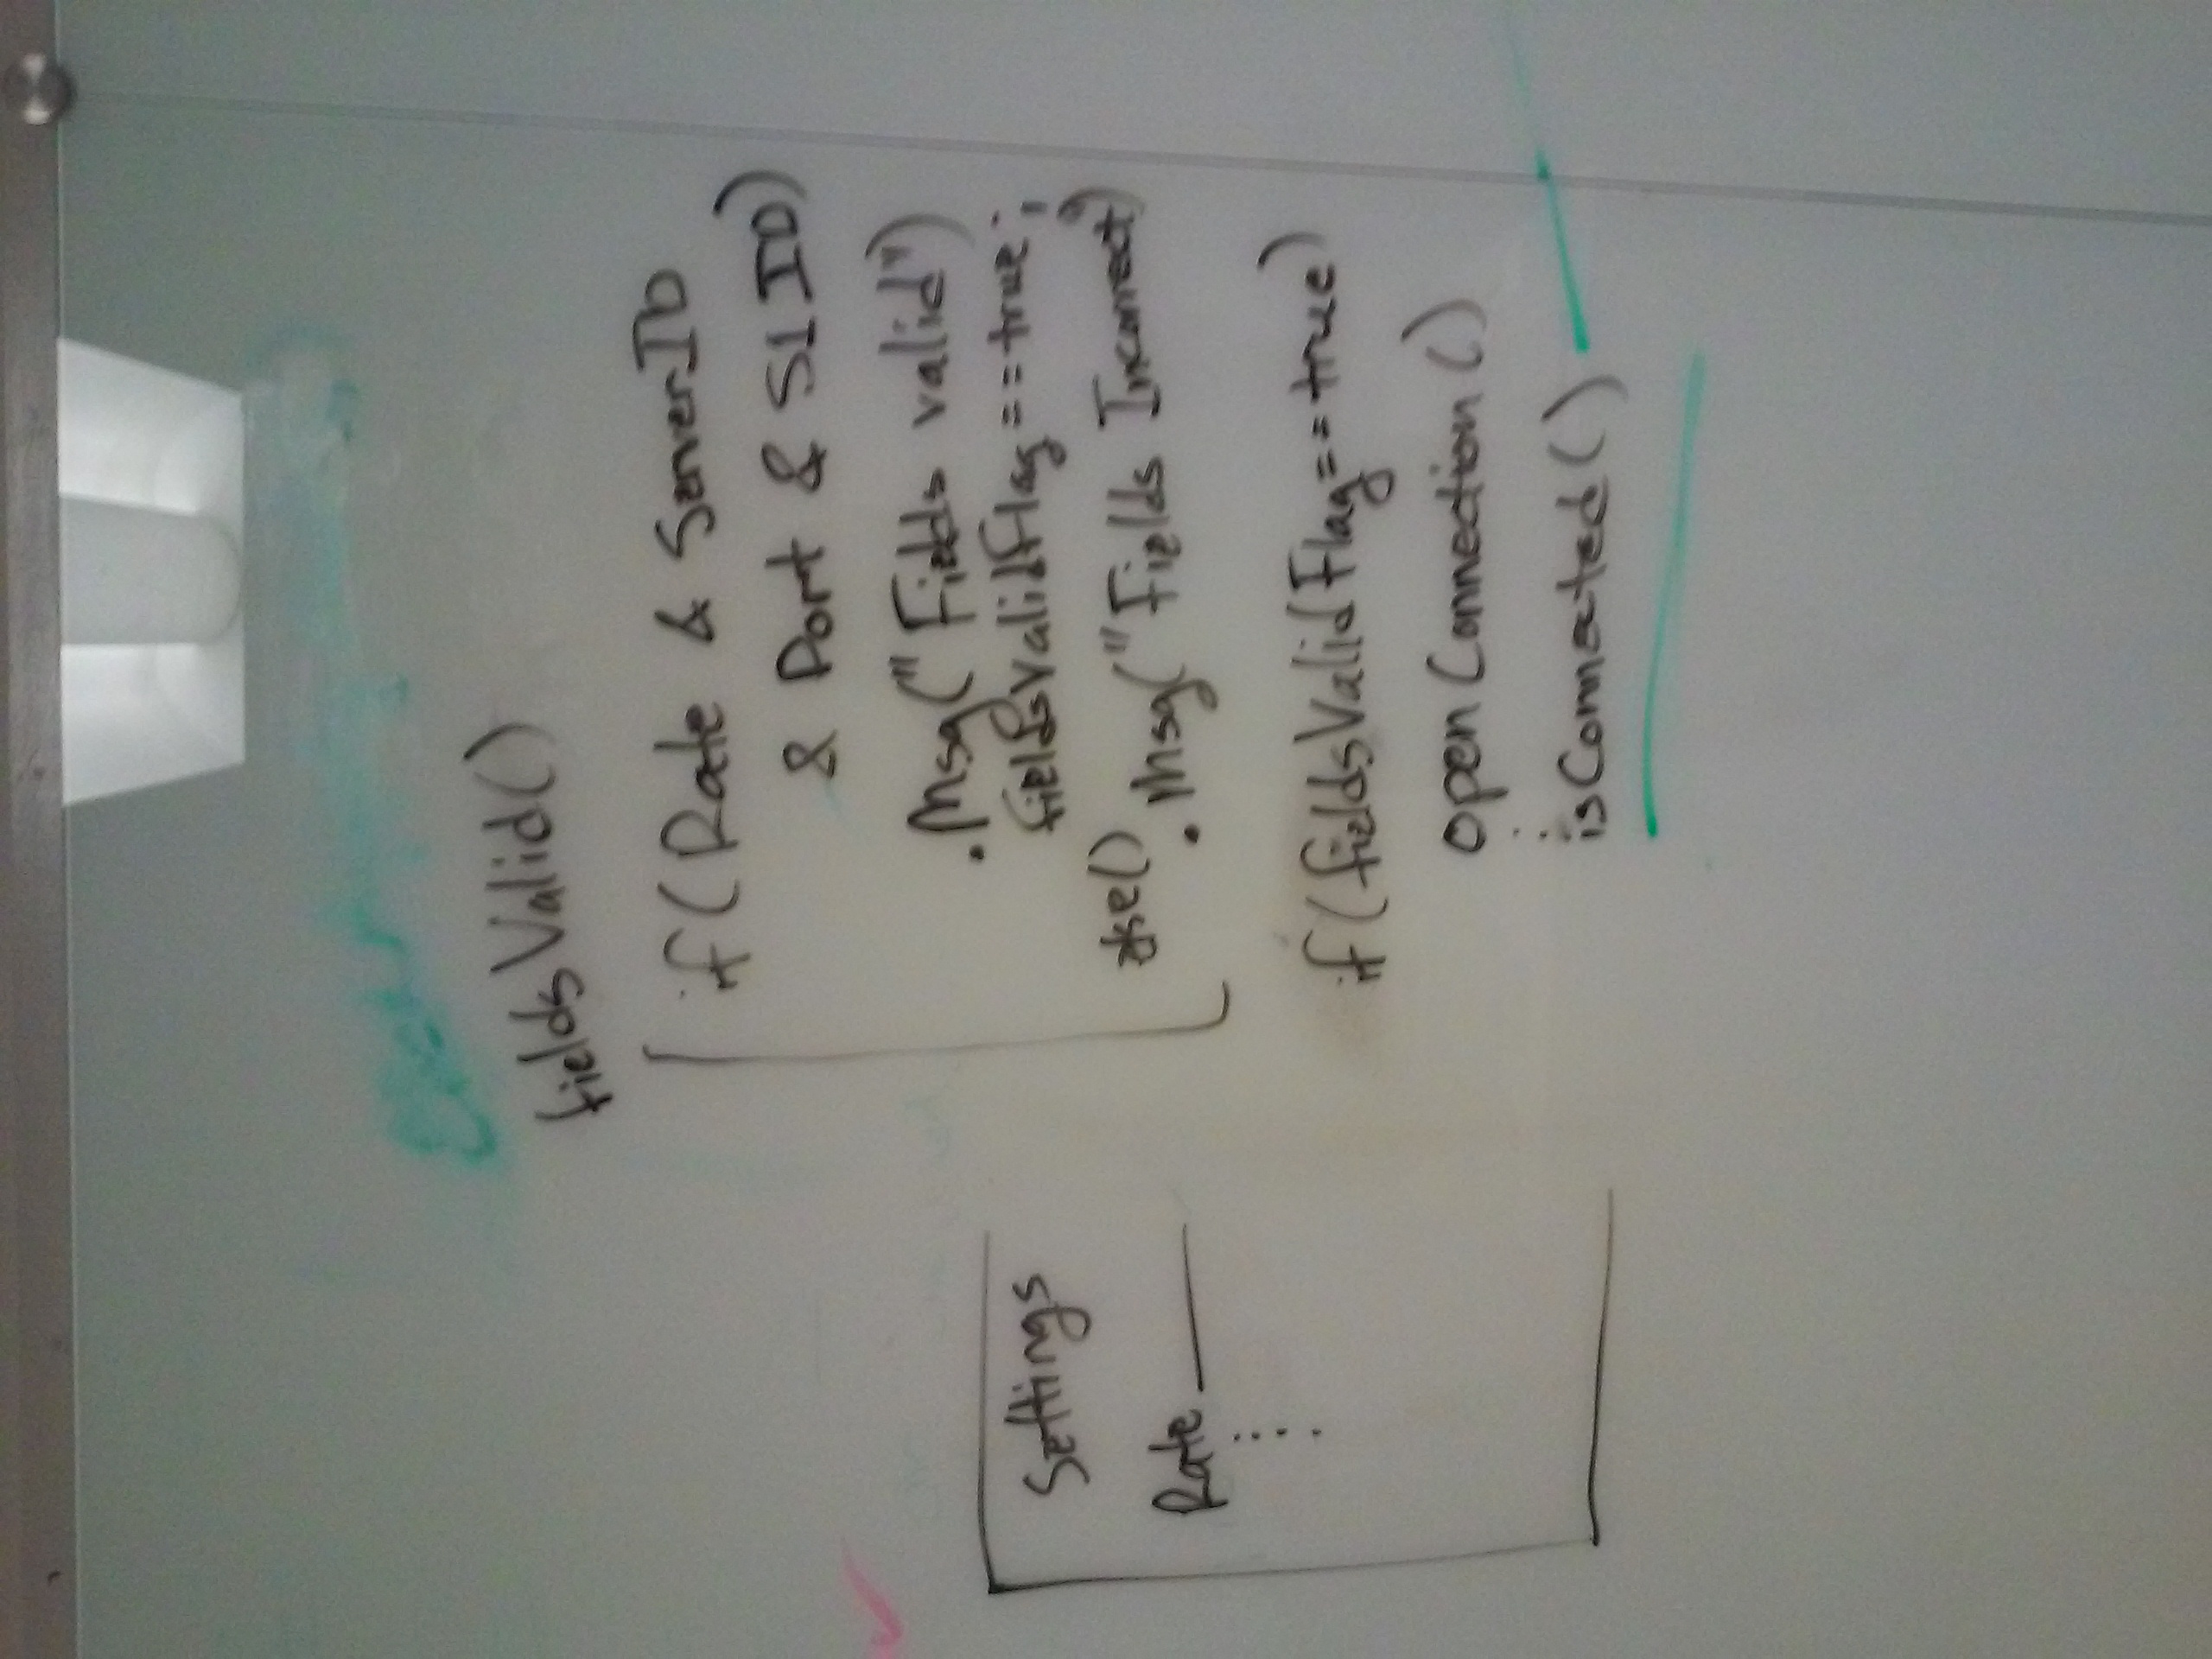 fieldsValid()
if (Rate & ServerID
& Port & S1 ID)
.Msg("Fields valid")
fieldsValidFlag == true;
else()
.Msg("Fields Incorrect")
if (fieldsValidFlag == true)
openConnection()
isConnected()
Settings
Rate